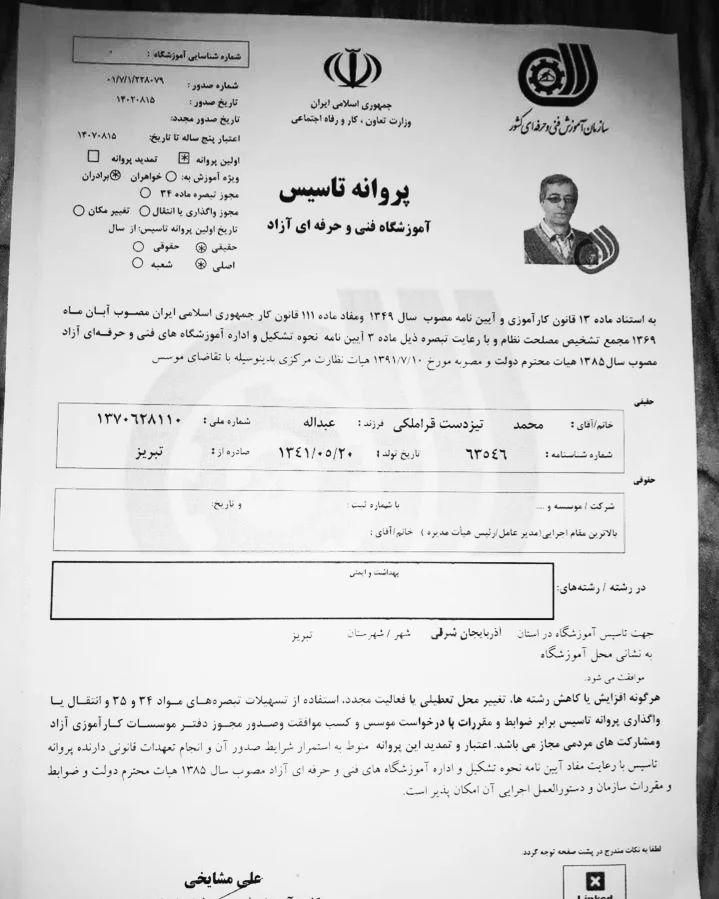 شماره شناسایی آموزشگاه :
شماره صدور : ۰۱/۷/۱/۲۲۸۰۷۹
تاریخ صدور : ۱۴۰۲۰۸۱۵
تاریخ صدور مجدد:
اعتبار پنج ساله تا تاریخ: ۱۴۰۷۰۸۱۵
اولین پروانه تمدید پروانه
ویژه آموزش به: خواهران برادران
مجوز تبصره ماده ۳۴
مجوز واگذاری یا انتقال تغییر مکان
تاریخ اولین پروانه تاسیس: از سال
حقیقی حقوقی
اصلی شعبه
جمهوری اسلامی ایران
وزارت تعاون ، کار و رفاه اجتماعی
سازمان آموزش فنی و حرفه ای کشور
پروانه تاسیس
آموزشگاه فنی و حرفه ای آزاد
به استناد ماده ۱۳ قانون کارآموزی و آیین نامه مصوب سال ۱۳۴۹ ومفاد ماده ۱۱۱ قانون کار جمهوری اسلامی ایران مصوب آبان ماه
۱۳۶۹ مجمع تشخیص مصلحت نظام و با رعایت تبصره ذیل ماده ۳ آیین نامه نحوه تشکیل و اداره آموزشگاه های فنی و حرفه‌ای آزاد
مصوب سال ۱۳۸۵ هیات محترم دولت و مصوبه مورخ ۱۳۹۱/۷/۱۰ هیات نظارت مرکزی بدینوسیله با تقاضای موسس
حقیقی
خانم/آقای : محمد تیزدست قراملکی فرزند : عبداله شماره ملی : ۱۳۷۰۶۲۸۱۱۰
شماره شناسنامه : ۶۳۵۴۶ تاریخ تولد : ۱۳۴۱/۰۵/۲۰ صادره از : تبریز
حقوقی
شرکت / موسسه و .... با شماره ثبت : و تاریخ:
بالاترین مقام اجرایی(مدیر عامل/رئیس هیأت مدیره ) خانم/آقای :
در رشته / رشته‌های: بهداشت و ایمنی
جهت تاسیس آموزشگاه در استان آذربایجان شرقی شهر / شهرستان تبریز
به نشانی محل آموزشگاه
موافقت می شود.
هرگونه افزایش یا کاهش رشته ها، تغییر محل تعطیلی یا فعالیت مجدد، استفاده از تسهیلات تبصره‌های مواد ۳۴ و ۳۵ و انتقال یا
واگذاری پروانه تاسیس برابر ضوابط و مقررات با درخواست موسس و کسب موافقت وصدور مجوز دفتر موسسات کارآموزی آزاد
ومشارکت های مردمی مجاز می باشد. اعتبار و تمدید این پروانه منوط به استمرار شرایط صدور آن و انجام تعهدات قانونی دارنده پروانه
تاسیس با رعایت مفاد آیین نامه نحوه تشکیل و اداره آموزشگاه های فنی و حرفه ای آزاد مصوب سال ۱۳۸۵ هیات محترم دولت و ضوابط
و مقررات سازمان و دستورالعمل اجرایی آن امکان پذیر است.
لطفا به نکات مندرج در پشت صفحه توجه گردد.
علی مشایخی
Linked